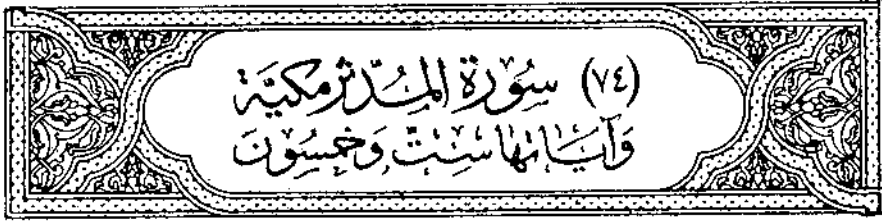 (٧٤) سُورَةُ المُدَّثِّرِ مَكِّيَّةٌ
وَآيَاتُهَا سِتٌّ وَخَمْسُونَ